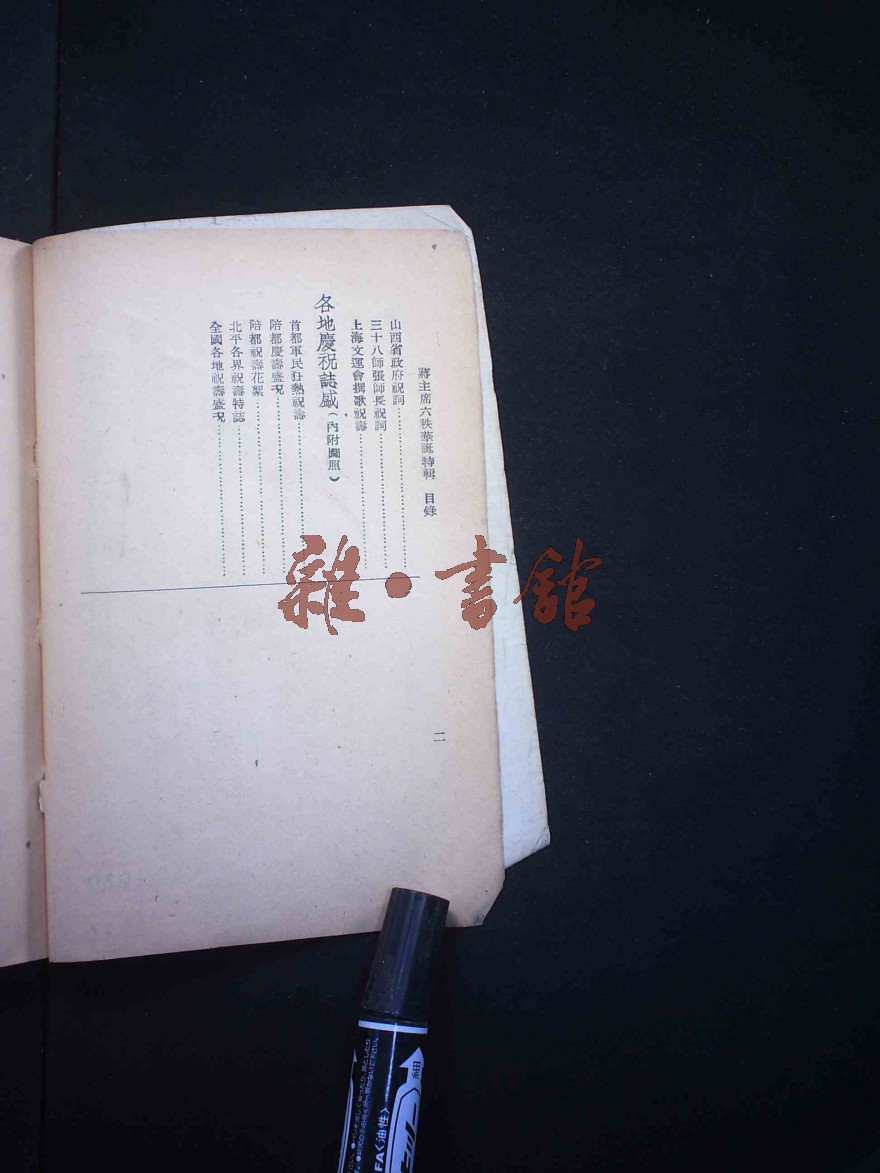 蔣主席六秩華誕特輯 目錄
二
山西省政府祝詞
三十八師張師長祝詞
上海文運會撰歌祝壽
各地慶祝誌盛(內附圖照)
首都軍民狂熱祝壽
陪都慶壽盛況
陪都祝壽花絮
北平各界祝壽特誌
全國各地祝壽盛況
雜·書館
細
FA〈油性〉